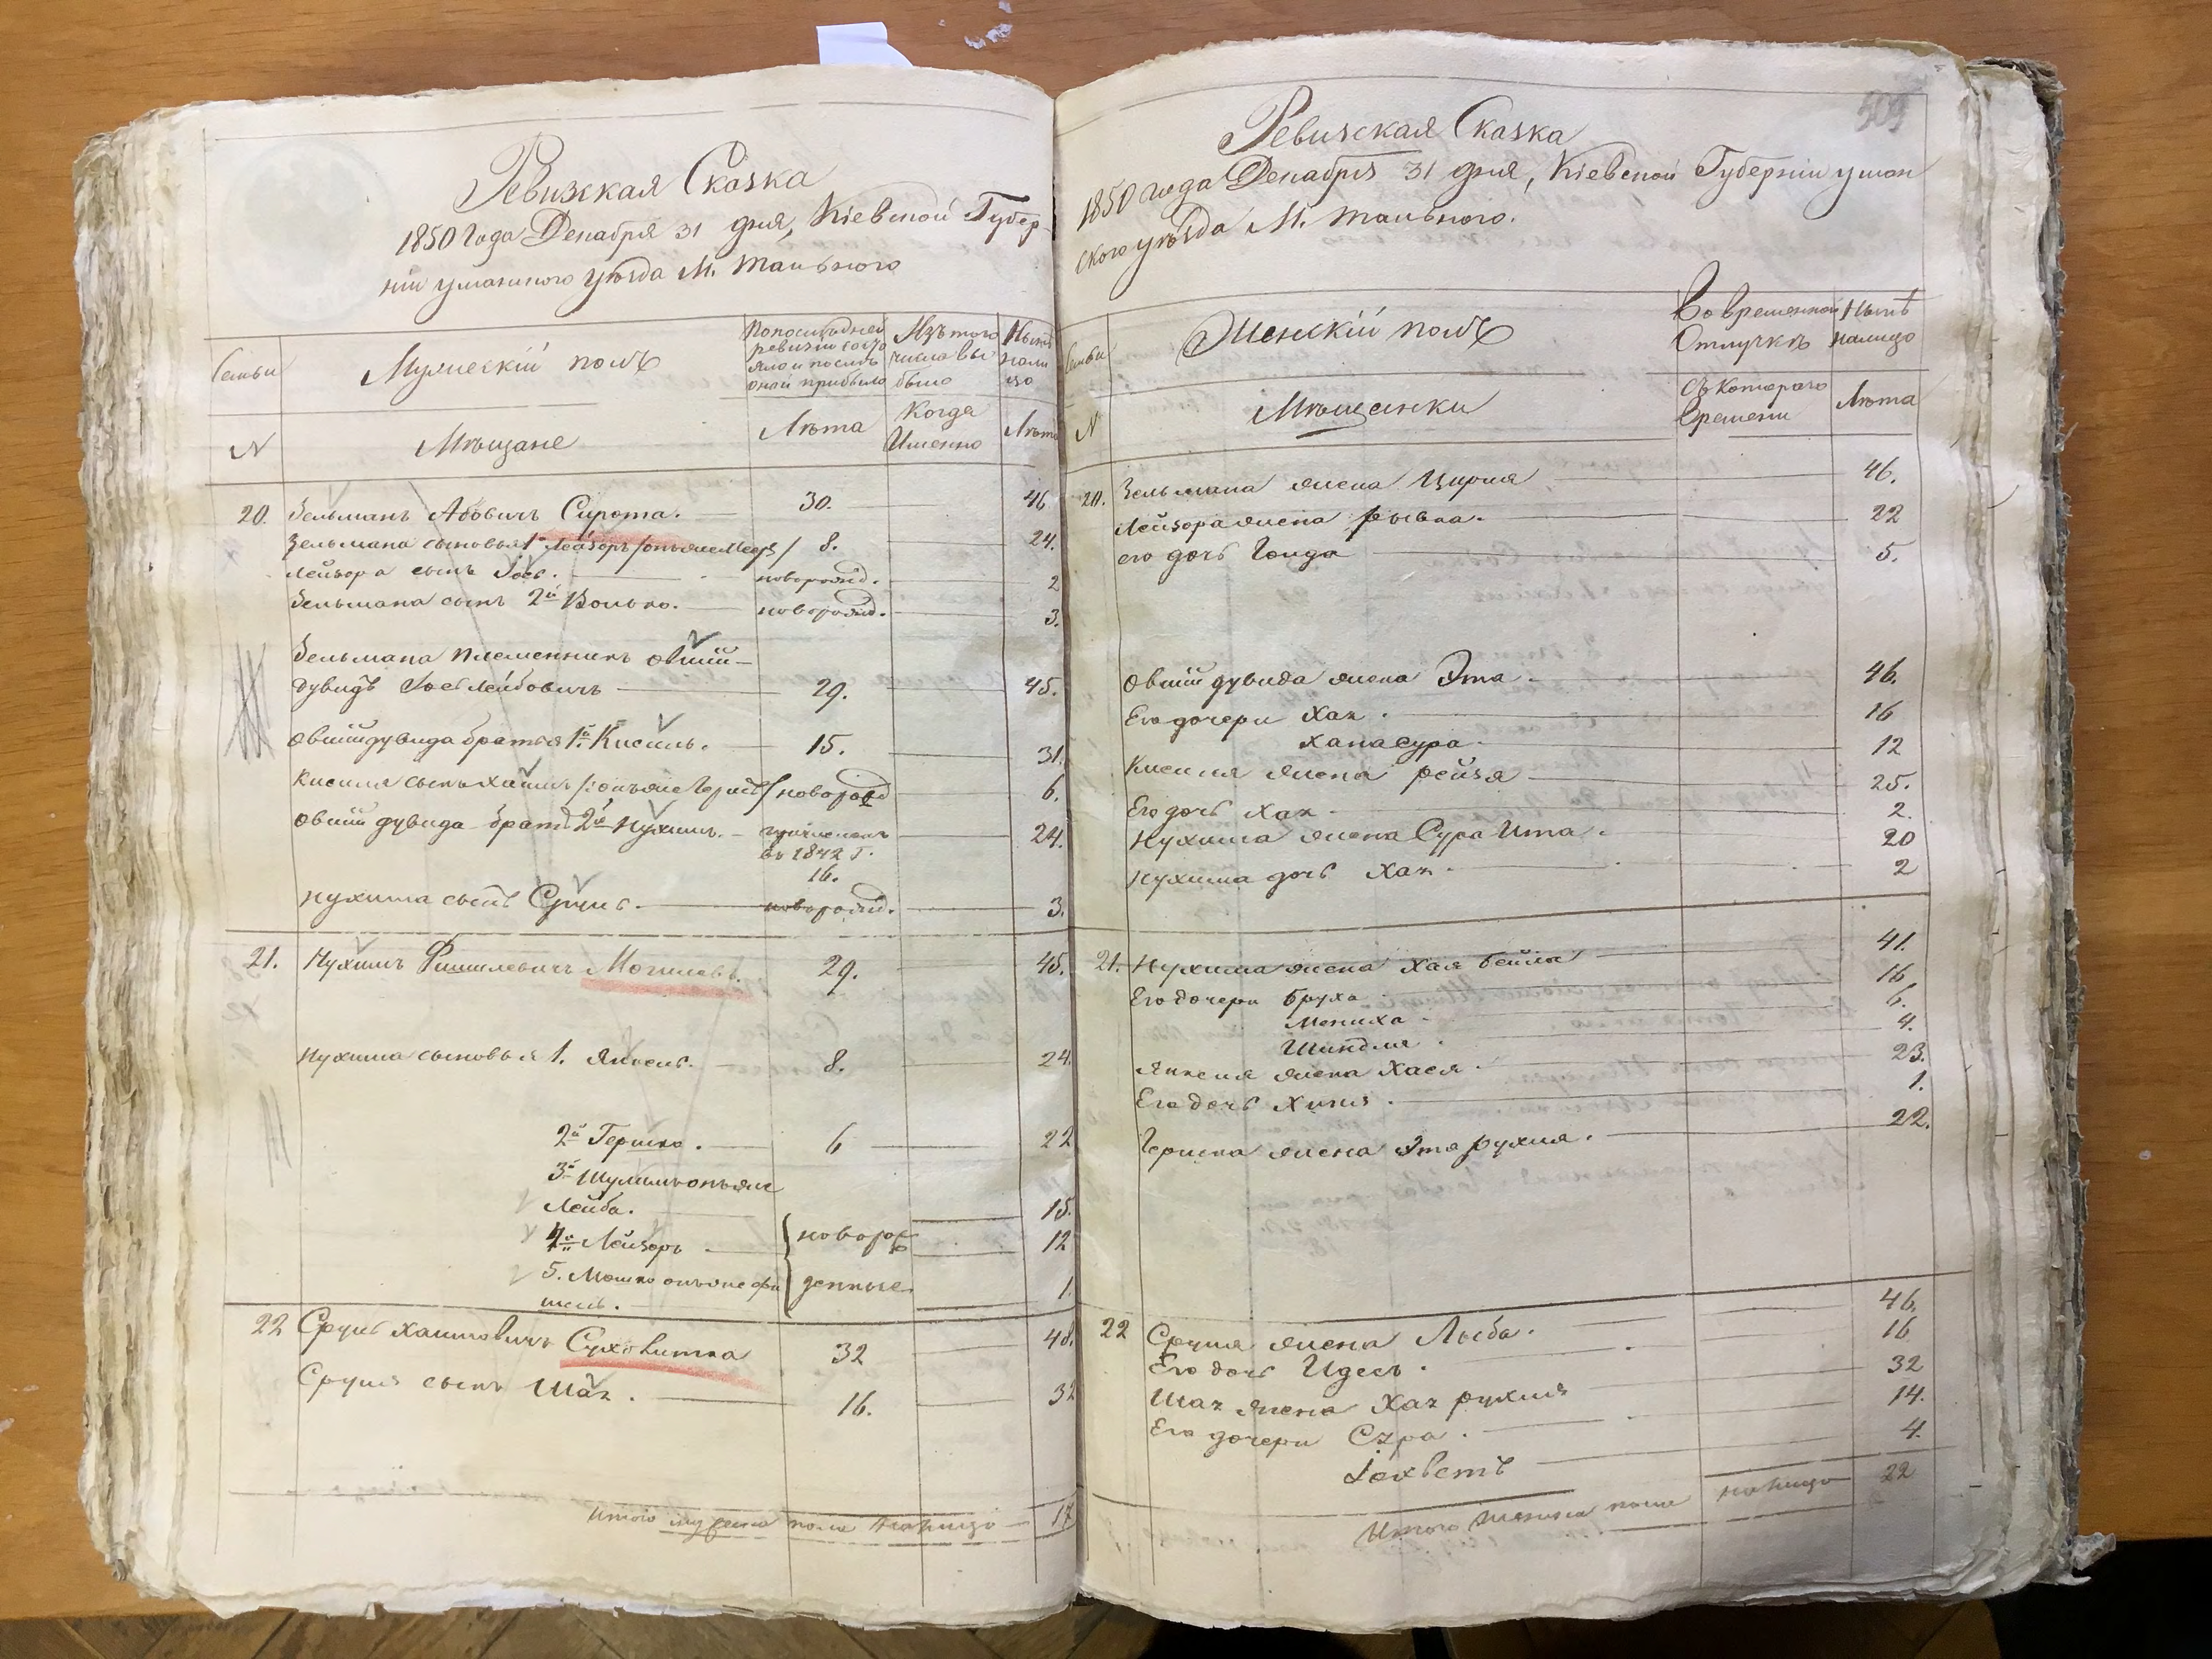 Ревизская Сказка
1850 года Декабря 31 дня, Кіевской Губер-
ніи уманского уѣзда М. Тального
Семьи
Мужескій полъ
По последней ревизіи состояло и после оной прибыло
Изъ того числа выбыло
Ныне налицо
N
Мѣщане
Лѣта
Когда Именно
Лѣта
20. Зельманъ Абовичъ Сирота. 30. 46
Зельмана сыновья 1й Лейзоръ /онъ же Меер/ 8. 24.
Лейзора сынъ Іось. новорожд. 2
Зельмана сынъ 2й Волько. новорожд. 3.
Зельмана племенникъ Овшій-
дувидъ Іось Лейбовичъ 29. 45.
Овшійдувида братья 1й Кисиль. 15. 31.
Кисиля сынъ Хаимъ /онъ же Герш/ новорожд 6.
Овшій дувида братъ 2й Нухимъ. причисленъ 24.
въ 1842 г.
16.
Нухима сынъ Сруль. новорожд. 3.
21. Нухимъ Фишилевичъ Могилевъ. 29. 45.
Нухима сыновья 1. Янкель. 8. 24.
2й Гершко. 6 22
3й Шулимъ онъ же
Лейба. 15.
4й Лейзоръ новорож 12
5. Мошко онъ же Фи денные 1.
шель.
22 Сруль Хаимовичъ Суховитка 32 48.
Сруля сынъ Шая. 16. 32
Итого мужеска пола налицо 17
509
Ревизская Сказка
1850 года Декабря 31 дня, Кіевской Губерніи уман
ского уѣзда М. Тального.
Семьи
Женскій полъ
Во временной Отлучкѣ
Нынѣ налицо
N
Мѣщанки
Съ котораго Времени
Лѣта
20. Зельмана жена Цирля 46.
Лейзора жена Рывка. 22
его дочь Голда 5.
Овшій дувида жена Эта 46.
Его дочери Хая. 16
Ханасура. 12
Кисиля жена Рейзя 25.
Его дочь Хая. 2.
Нухима жена Сура Ита. 20
Нухима дочь Хая. 2
21. Нухима жена Хая Бейла 41.
Его дочери Бруха 16
Мениха 6.
Шиндля. 4.
Янкеля жена Хася. 23.
Его дочь Хиня. 1.
Гершка жена Этя рухля. 22.
22 Сруля жена Лыба. 46.
Его дочь Идесь. 16
Шая жена Хая рухля 32
Его дочери Сура. 14.
Іохветъ 4.
Итого женска пола налицо 22